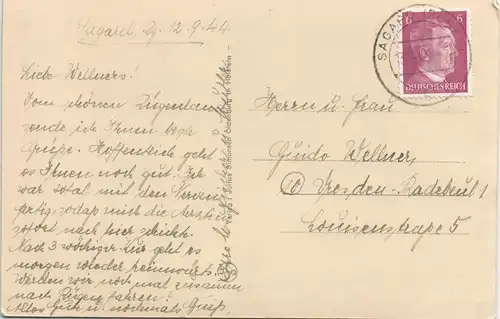 Sagard, Rg. 12.9.44
Liebe Wellners.
Vom schönen Rügenland
sende ich Ihnen beste
Grüße. Hoffentlich geht
es Ihnen noch gut. Ich
war total mit den Nerven
fertig, sodaß mich die Ärzte
sofort nach hier schickte.
Nach 3 wöchiger Kur geht es
morgen wieder heimwärts.
Werden wir noch mal zusammen
nach Rügen fahren?
Alles Gute u. nochmals Gruß,
SAGARD
6 6
DEUTSCHES REICH
Herrn u. Frau
Guido Wellner,
Dresden-Radebeul 1
Louisenstraße 5